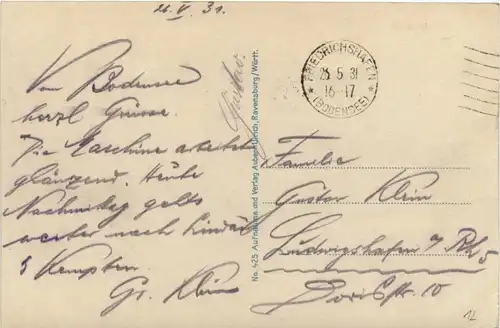 26. V. 31.
Vom Bodensee
herzl Grüsse.
Die Maschine arbeitet
glänzend. Heute
Nachmittag gehts
weiter nach Lindau
Kempten.
Gr. Klein
Gustav.
No. 425 Aufnahme und Verlag August Zittrich, Ravensburg/Württ.
FRIEDRICHSHAFEN
26 5 31
16-17
* (BODENSEE) *
Familie
Gustav Klein
Ludwigshafen a/Rh
Dorsstr. 10
12